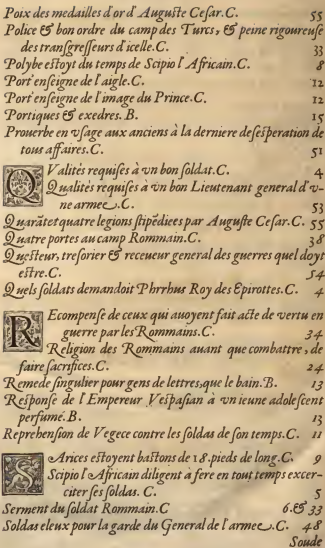 Poix des medailles d'or d'Auguste Cesar.C. 55
Police & bon ordre du camp des Turcs, & peine rigoureuse
des transgresseurs d'icelle.C. 33
Polybe estoyt du temps de Scipio l'Africain.C. 8
Port'enseigne de l'aigle.C. 12
Port'enseigne de l'image du Prince.C. 12
Portiques & exedres.B. 15
Prouerbe en vsage aux anciens à la derniere desesperation de
tous affaires.C. 51
QValités requises à vn bon soldat.C. 4
Qualités requises à vn bon Lieutenant general d'v-
ne armee.C. 53
Quarãtetquatre legions stipẽdiees par Auguste Cesar.C. 55
Quatre portes au camp Rommain.C. 38
Questeur, tresorier & receueur general des guerres quel doyt
estre.C. 54
Quels soldats demandoit Phrrhus Roy des Epirottes.C. 4
REcompense de ceux qui auoyent fait acte de vertu en
guerre par les Rommains.C. 34
Religion des Rommains auant que combattre, de
faire sacrifices.C. 24
Remede singulier pour gens de lettres, que le bain.B. 13
Responſe de l'Empereur Vespasian à vn ieune adolescent
perfumé.B. 13
Reprehension de Vegece contre les soldas de son temps.C. 11
SArices estoyent bastons de 18.pieds de long.C. 9
Scipio l'Africain diligent à fere en tout temps excer-
citer ses soldas.C. 5
Serment du soldat Rommain.C 6.& 33
Soldas eleux pour la garde du General de l'armee.C. 48
Soude